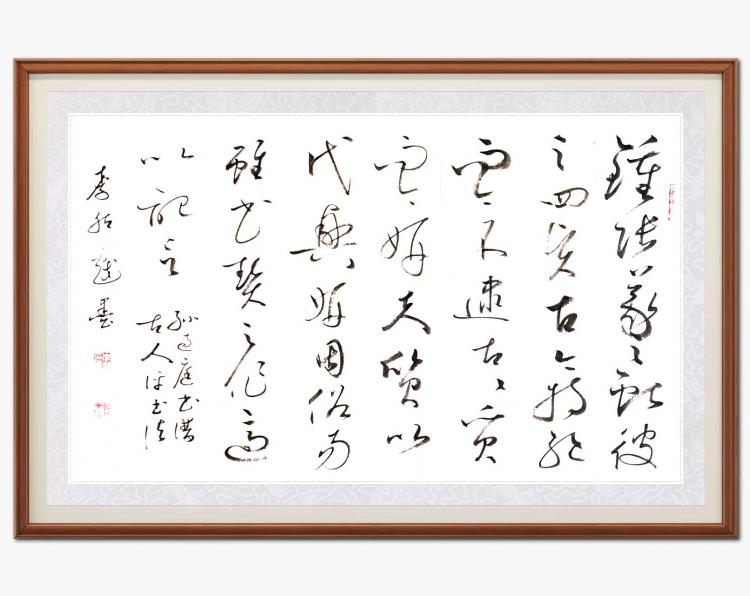 鍾張羲獻彼
之四賢古今特絕
而今不逮古古質
而今妍夫質以
代興妍因俗易
雖書契之作適
以記言
孫過庭書譜
古人評書法
李 墨